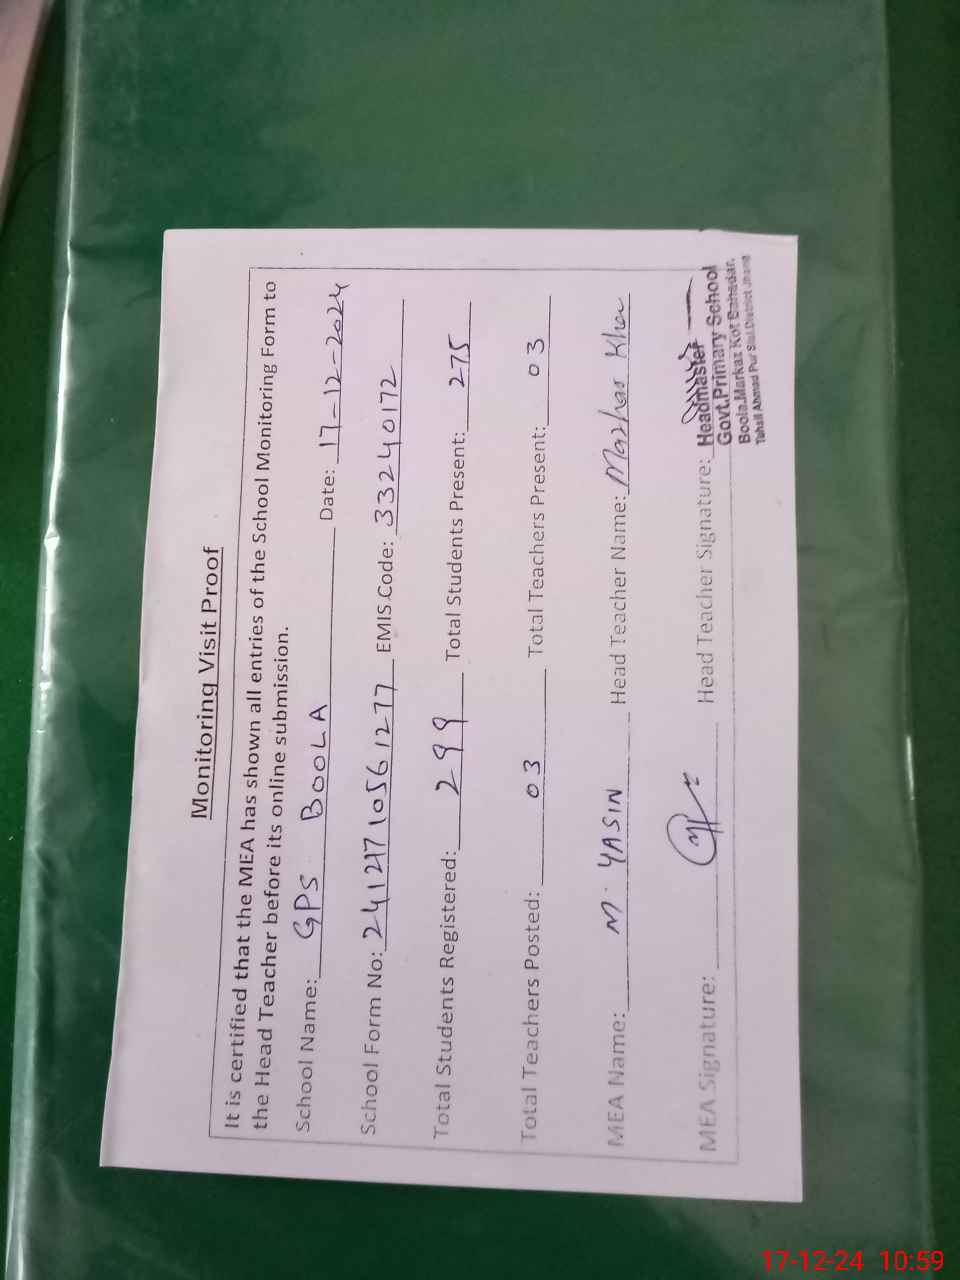 Monitoring Visit Proof
It is certified that the MEA has shown all entries of the School Monitoring Form to
the Head Teacher before its online submission.
School Name: GPS BOOLA Date: 17-12-2024
School Form No: 241217105612 77 EMIS Code: 33240172
Total Students Registered: 299 Total Students Present: 275
Total Teachers Posted: 03 Total Teachers Present: 03
MEA Name: M. YASIN Head Teacher Name: Mazhar Khan
MEA Signature: Head Teacher Signature:
Headmaster
Govt.Primary School
Boola.Markaz Kot Bahadar.
Tehsil Ahmad Pur Sial.District Jhang
17-12-24 10:59